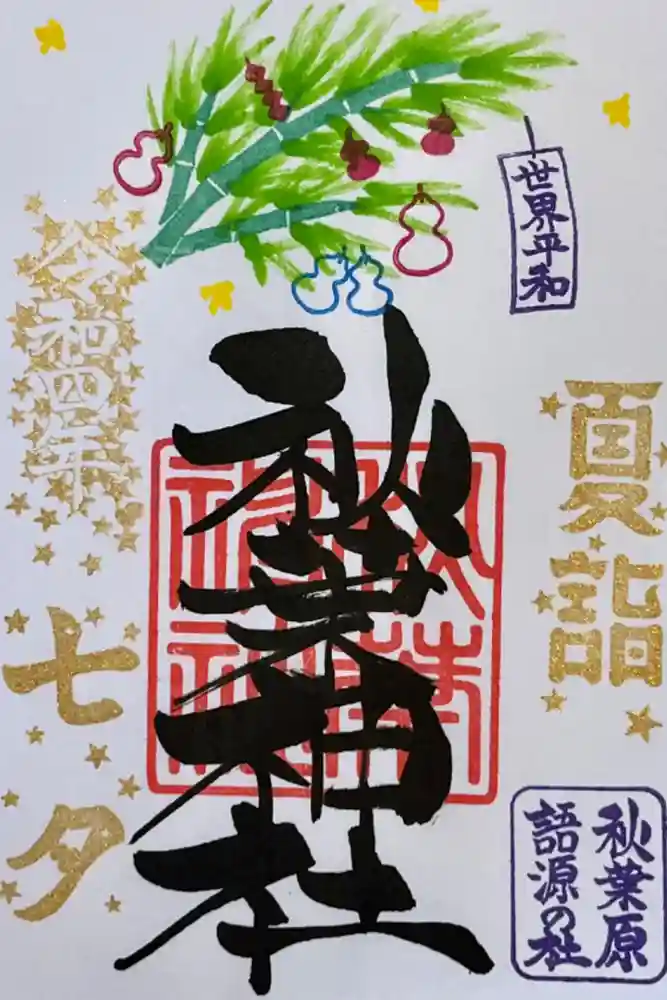 世界平和
夏詣
秋葉原
語源の社
秋葉神社
秋葉神社
令和四年
七夕